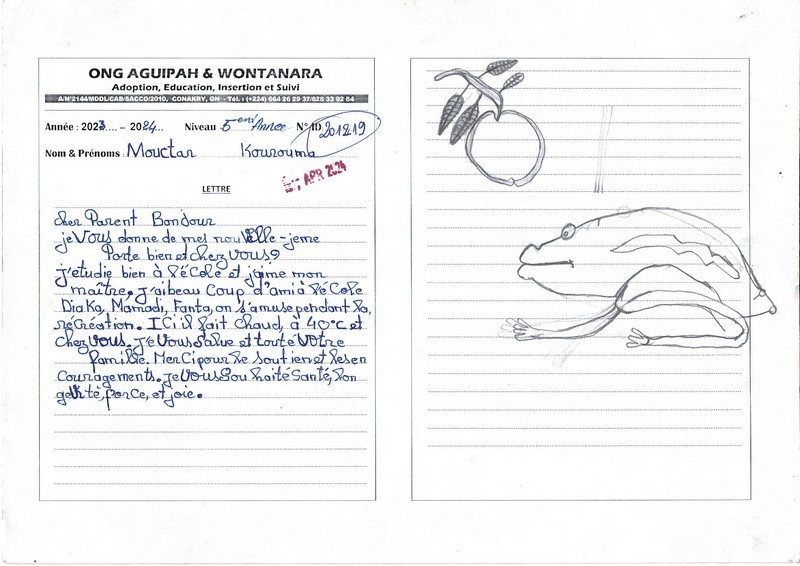 ONG AGUIPAH & WONTANARA
Adoption, Education, Insertion et Suivi
A/N°2144/MDDL/CAB/SACCO/2010, CONAKRY, GN : Tel.: (+224) 664 26 29 37/628 33 92 84
Année : 2023.... – 2024... Niveau 5em Année N° ID 201219
Nom & Prénoms : Mouctar Kourouma
APR 2024
LETTRE
cher Parent Bonjour
je Vous donne de mes nouvelle - jeme
Porte bien et chez vous?
j'étudie bien à l'école et j'aime mon
maître. j'ai beau Coup d'ami à l'école
Diaka, Mamadi, Fanta, on s'amuse pendant la,
récréation. ICi il fait chaud, à 40°c et
chez vous. je Vous Salue et toute Votre
famille. Merci pour le soutien et les en
Couragements. je Vous Souhaité Santé, lon
gévité, force, et joie.